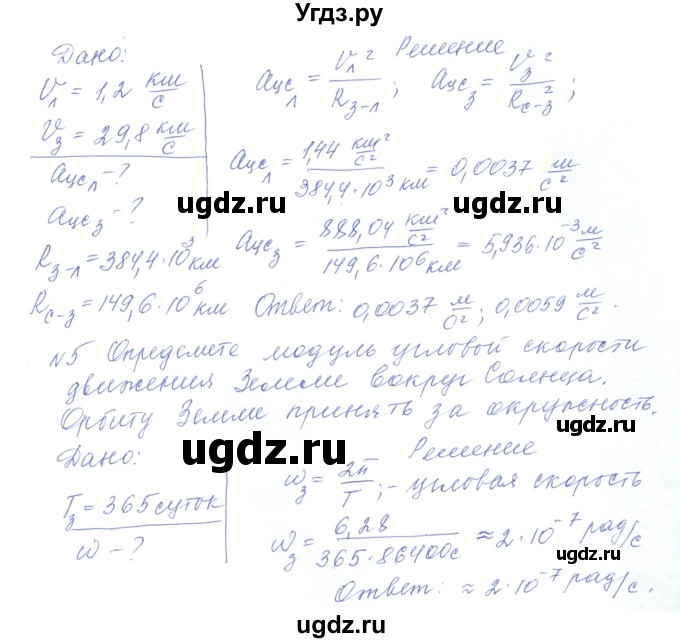 Угдз.ру
Дано: Решение
Vл = 1,2 км/с
Vз = 29,8 км/с
aцсл - ?
aцсз - ?
Rз-л = 384,4·10³ км
Rс-з = 149,6·10⁶ км
aцсл = Vл²/Rз-л ; aцсз = Vз²/Rс-з ;
aцсл = 1,44 км²/с² / 384,4·10³ км = 0,0037 м/с²
ugdz.ru ugdz.ru
aцсз = 888,04 км²/с² / 149,6·10⁶ км = 5,936·10⁻³ м/с²
ugdz.ru
Ответ: 0,0037 м/с² ; 0,0059 м/с² .
N5 Определите модуль угловой скорости
движения Земли вокруг Солнца.
Орбиту Земли принять за окружность.
ugdz.ru ugdz.ru
Дано: Решение
Tз = 365 суток
ω - ?
ωз = 2π/T ; - угловая скорость
ωз = 6,28 / 365·86400с ≈ 2·10⁻⁷ рад/с
ugdz.ru ugdz.ru
Ответ: ≈ 2·10⁻⁷ рад/с.
ugdz.ru